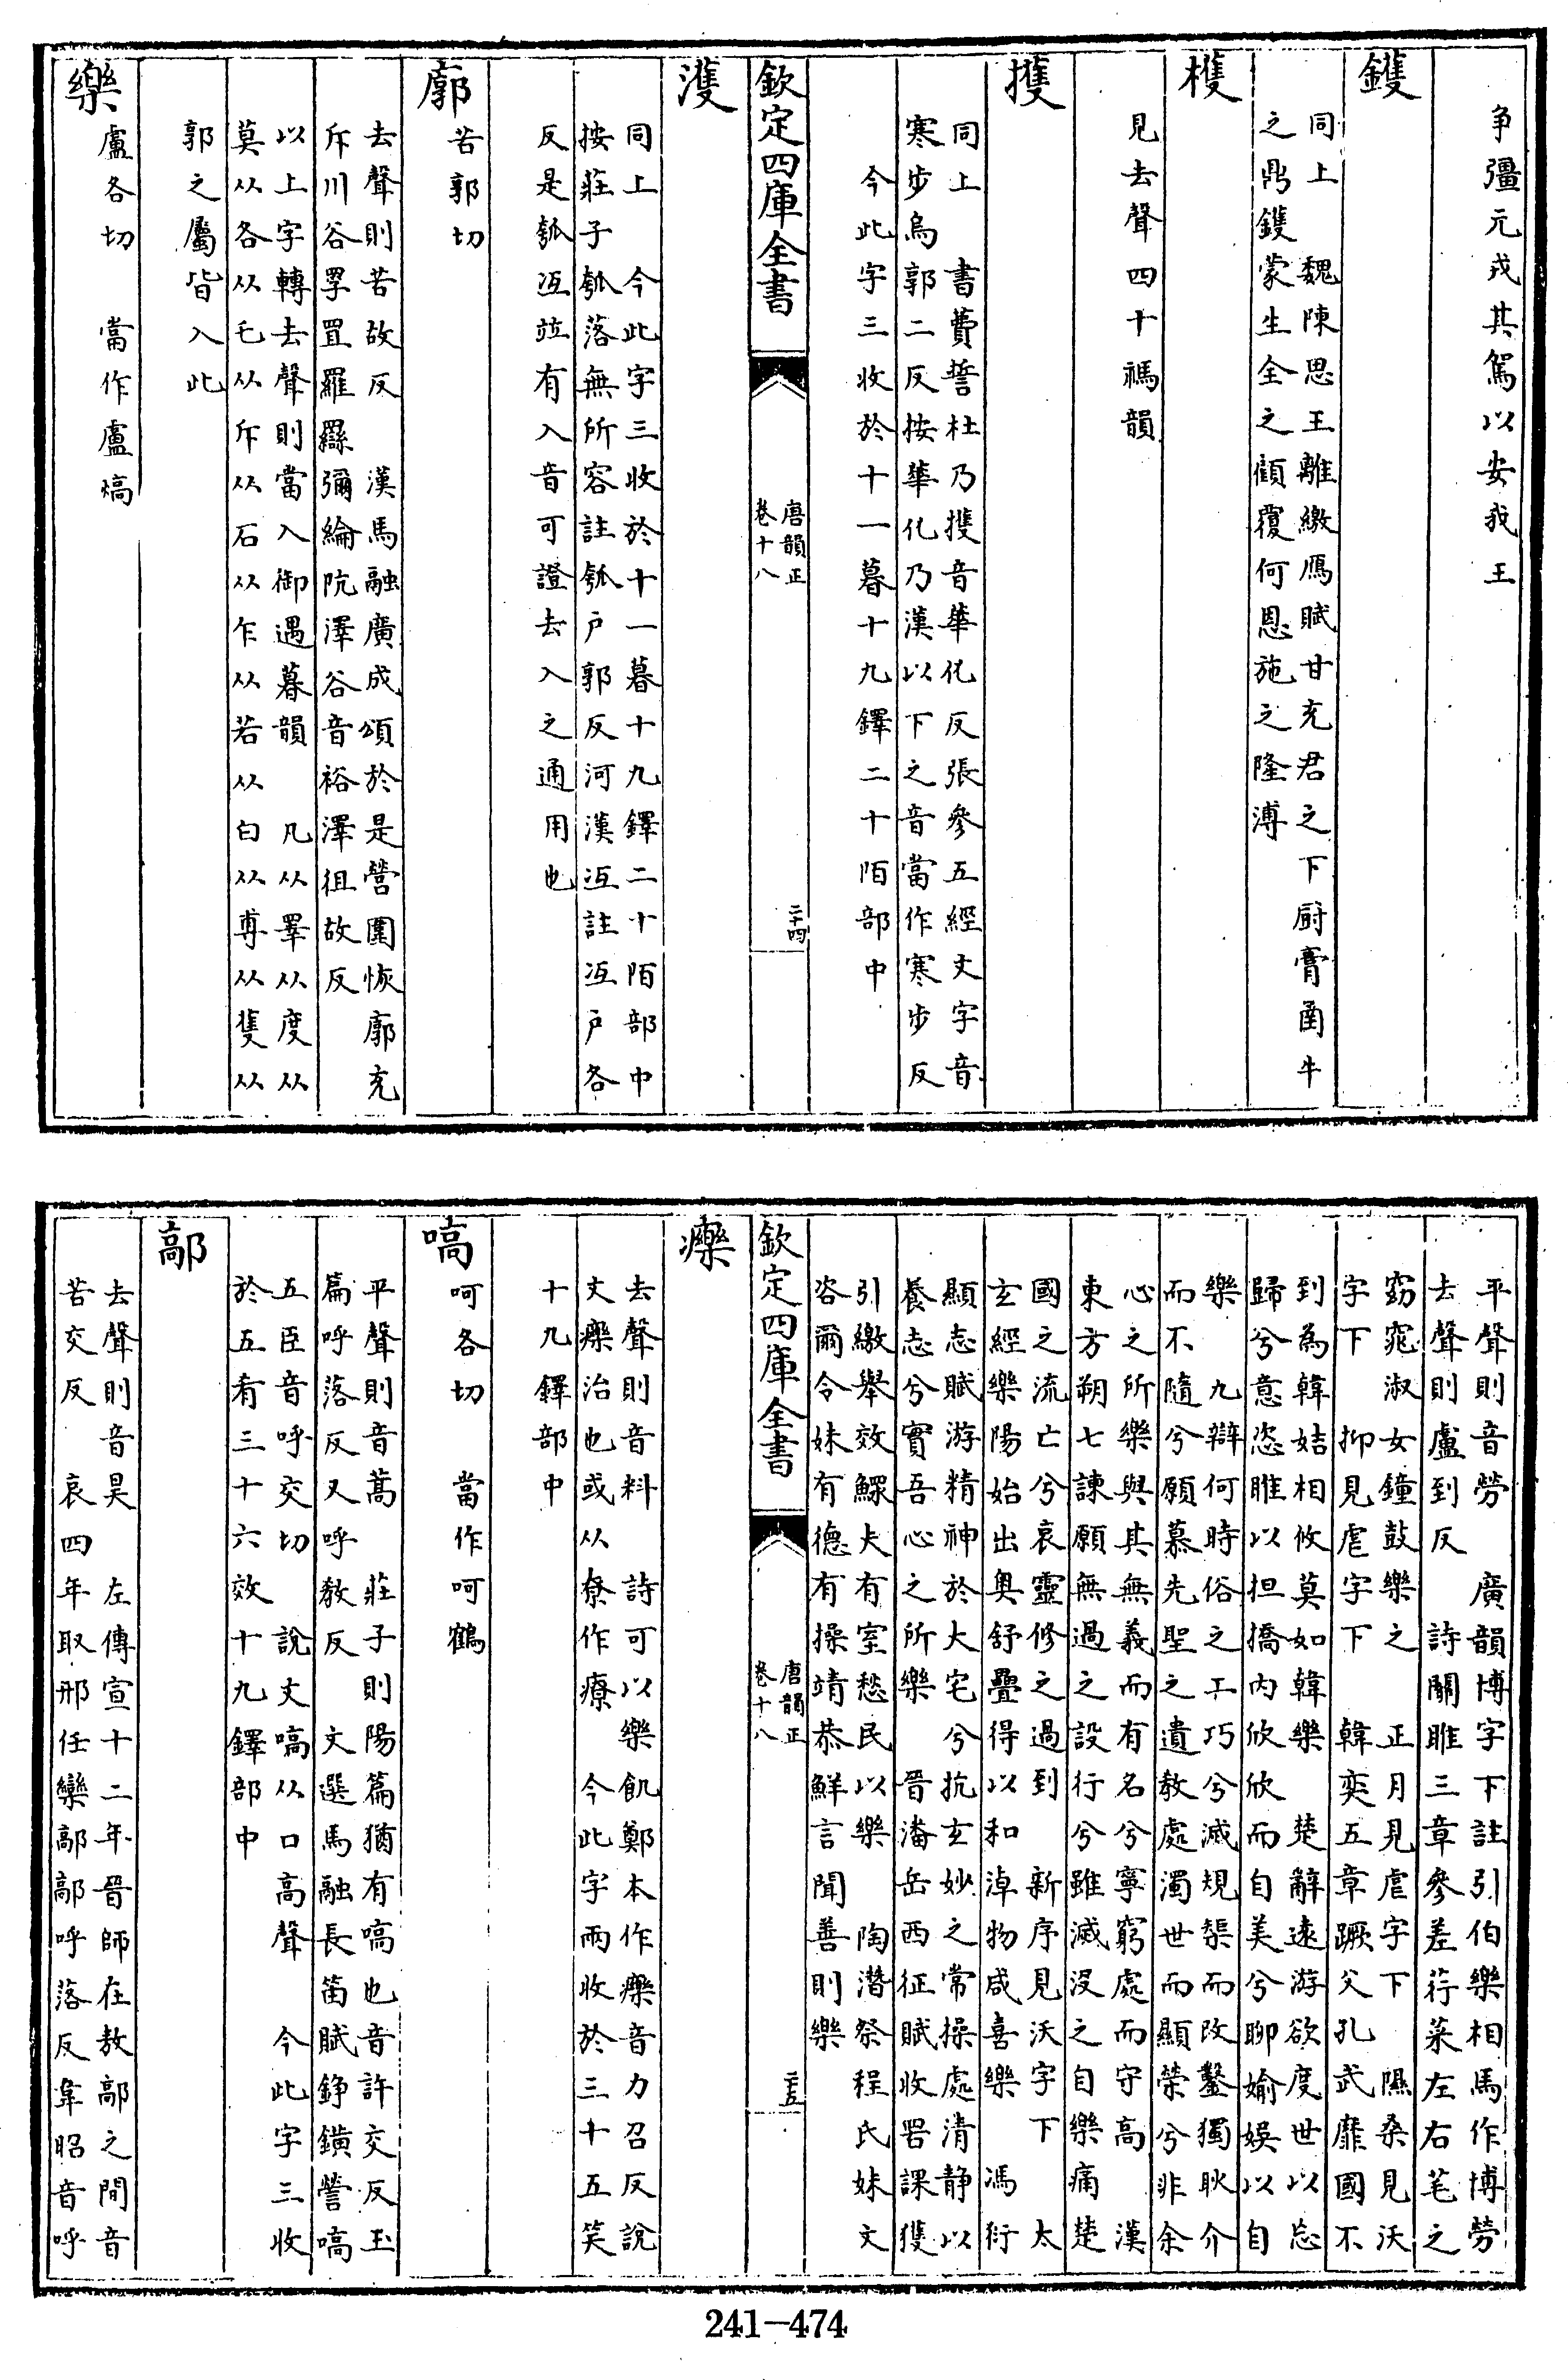 争彊元戎其駕以安我王
鑊
同上　魏陳思王離繳鴈賦甘充君之下厨膏函牛
之鼎鑊蒙生全之顧覆何恩施之隆溥
檴
見去聲四十禡韻
擭
同上　書費誓杜乃擭音華化反張參五經文字音
寒步烏郭二反按華化乃漢以下之音當作寒步反
今此字三收於十一暮十九鐸二十陌部中
欽定四庫全書
唐韻正
卷十八
二十四
濩
同上　今此字三收於十一暮十九鐸二十陌部中
按莊子瓠落無所容註瓠戸郭反河漢沍註沍戸各
反是瓠沍竝有入音可證去入之通用也
廓
苦郭切
去聲則苦故反　漢馬融廣成頌於是營圍恢廓充
斥川谷罦罝羅羉彌綸阬澤谷音裕澤徂故反
以上字轉去聲則當入御遇暮韻　凡从睪从度从
莫从各从乇从斥从石从乍从若从白从尃从隻从
郭之屬皆入此
樂
盧各切　當作盧熇
平聲則音勞　廣韻博字下註引伯樂相馬作博勞
去聲則盧到反　詩關雎三章參差荇菜左右芼之
窈窕淑女鐘鼓樂之　正月見虐字下　隰桑見沃
字下　抑見虐字下　韓奕五章蹶父孔武靡國不
到為韓姞相攸莫如韓樂　楚辭遠游欲度世以忘
歸兮意恣睢以担撟内欣欣而自美兮聊媮娱以自
樂　九辯何時俗之工巧兮滅規榘而改鑿獨耿介
而不隨兮願慕先聖之遺教處濁世而顯榮兮非余
心之所樂與其無義而有名兮寧窮處而守高　漢
東方朔七諫願無過之設行兮雖滅沒之自樂痛楚
國之流亡兮哀靈修之過到　新序見沃字下　太
玄經樂陽始出奥舒疊得以和淖物咸喜樂　馮衍
顯志賦游精神於大宅兮抗玄妙之常操處清静以
養志兮實吾心之所樂　晉潘岳西征賦收罟課獲
引繳舉效鰥夫有室愁民以樂　陶潛祭程氏妹文
咨爾令妹有德有操靖恭鮮言聞善則樂
欽定四庫全書
唐韻正
卷十八
二十五
㿋
去聲則音料　詩可以樂飢鄭本作㿋音力召反說
文㿋治也或从尞作療　今此字兩收於三十五笑
十九鐸部中
嗃
呵各切　當作呵鶴
平聲則音蒿　莊子則陽篇猶有嗃也音許交反玉
篇呼落反又呼教反　文選馬融長笛賦錚鐄謍嗃
五臣音呼交切　說文嗃从口高聲　今此字三收
於五肴三十六效十九鐸部中
鄗
去聲則音昊　左傳宣十二年晉師在敖鄗之間音
苦交反　哀四年取邢任欒鄗鄗呼落反韋昭音呼
241—474